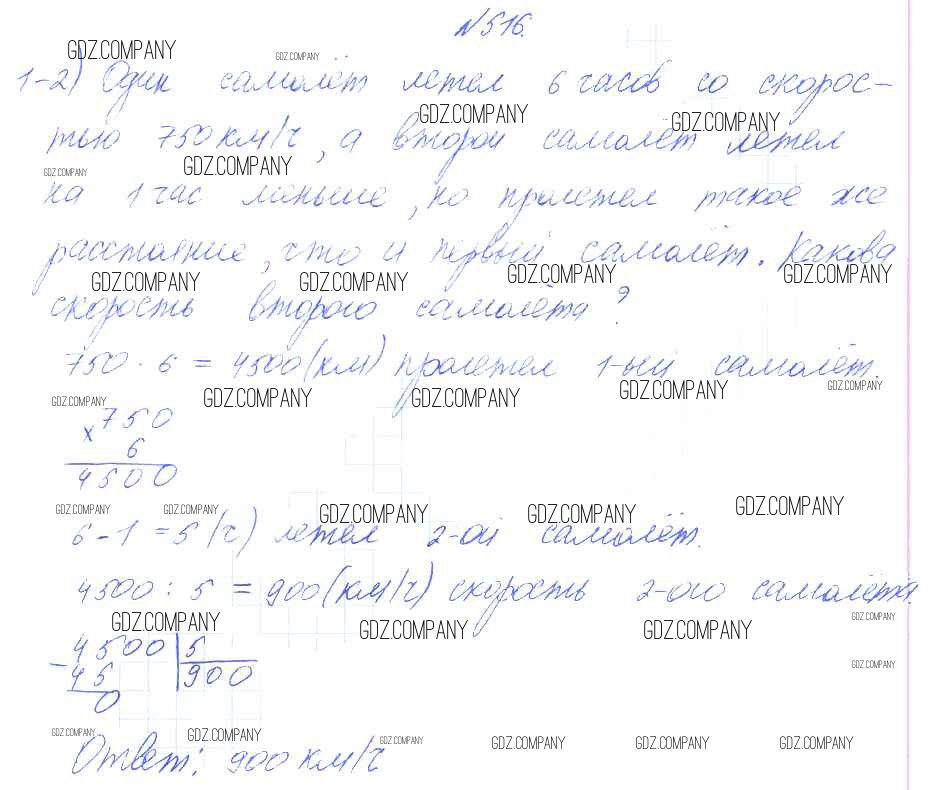 №516.
GDZ.COMPANY GDZ.COMPANY
1-2) Один самолёт летел 6 часов со скорос-
GDZ.COMPANY GDZ.COMPANY
тью 750 км/ч, а второй самолёт летел
GDZ.COMPANY GDZ.COMPANY
на 1 час меньше, но пролетел такое же
расстояние, что и первый самолёт. Какова
GDZ.COMPANY GDZ.COMPANY GDZ.COMPANY GDZ.COMPANY
скорость второго самолёта?
750 · 6 = 4500 (км) пролетел 1-ый самолёт.
GDZ.COMPANY GDZ.COMPANY GDZ.COMPANY GDZ.COMPANY GDZ.COMPANY
x 750
6
4500
GDZ.COMPANY GDZ.COMPANY GDZ.COMPANY GDZ.COMPANY GDZ.COMPANY
6 - 1 = 5 (ч) летел 2-ой самолёт.
4500 : 5 = 900 (км/ч) скорость 2-ого самолёта.
GDZ.COMPANY GDZ.COMPANY GDZ.COMPANY GDZ.COMPANY
- 4500 5
45 900
GDZ.COMPANY
0
GDZ.COMPANY GDZ.COMPANY GDZ.COMPANY GDZ.COMPANY GDZ.COMPANY GDZ.COMPANY
Ответ: 900 км/ч